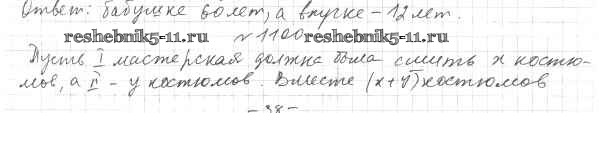 Ответ: бабушке 60 лет, а внучке - 12 лет.
reshebnik5-11.ru №1100 reshebnik5-11.ru
Пусть I мастерская должна была сшить x костю-
мов, а II - y костюмов. Вместе (x+y) костюмов
- 38 -